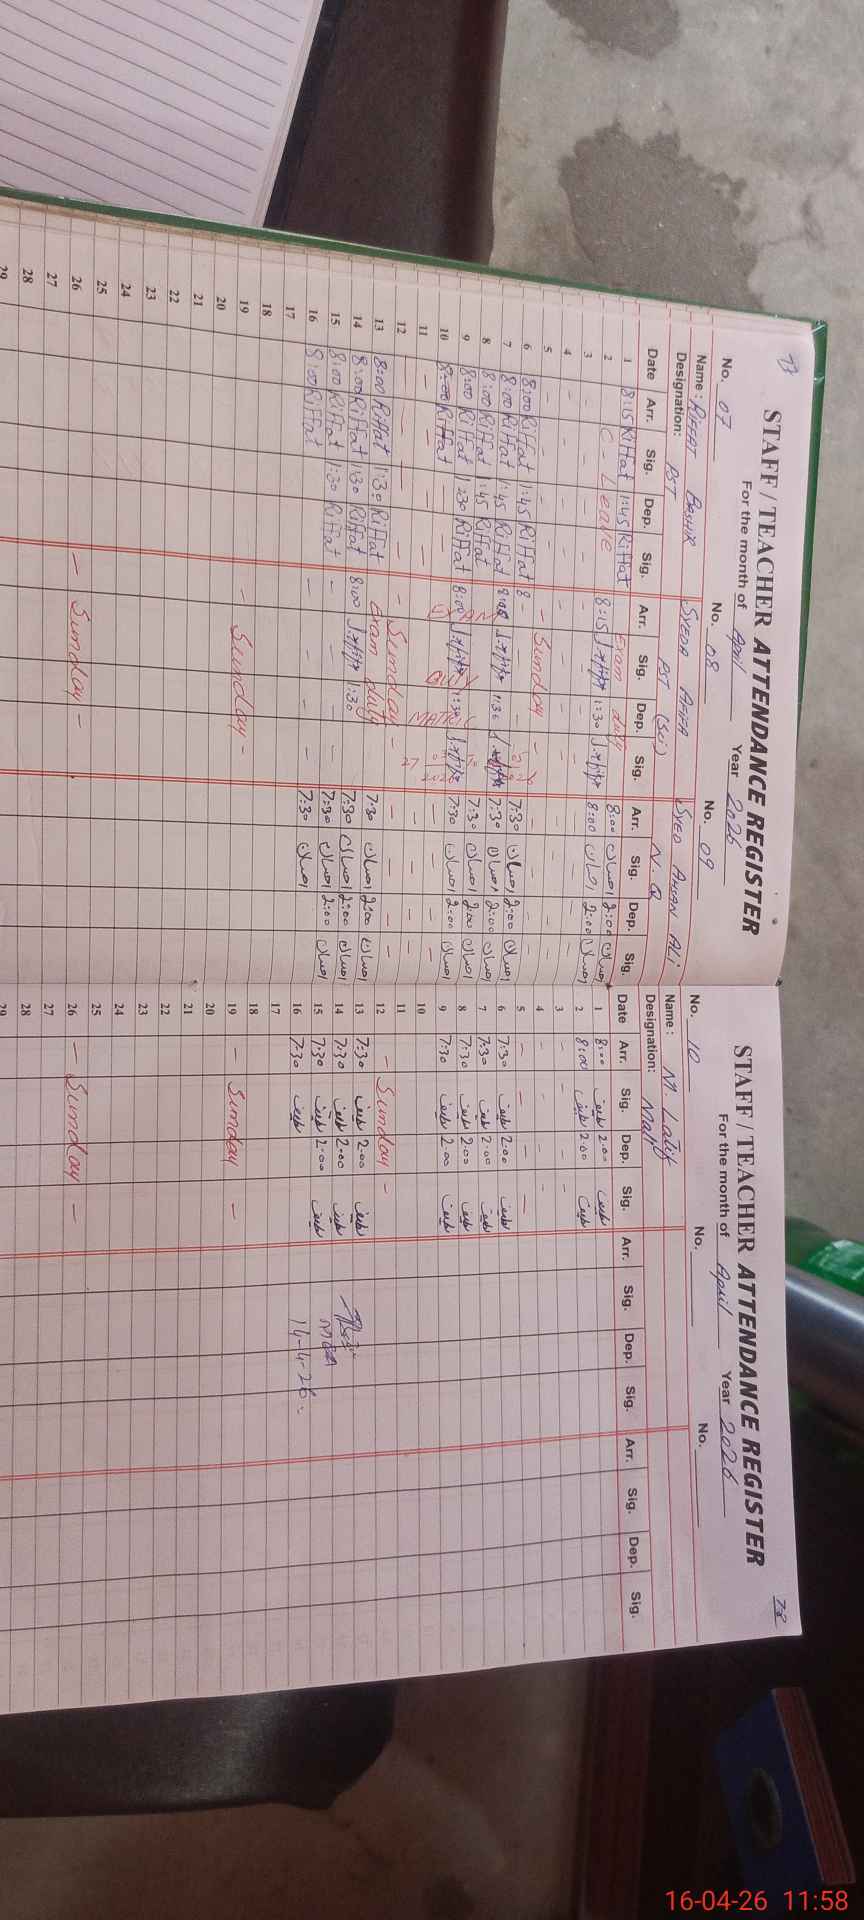 73
STAFF / TEACHER ATTENDANCE REGISTER
For the month of April Year 2026
No. 07 No. 08 No. 09
Name: RIFFAT BASHIR SYEDA AIZA SYED AHSAN ALI
Designation: PST PST (Sci) N.Q
Date Arr. Sig. Dep. Sig. Arr. Sig. Dep. Sig. Arr. Sig. Dep. Sig.
1 8:15 Riffat 1:45 Riffat Exam duty 8:00 احسان 2:00 احسان
2 C - Leave 8:15 1:30 8:00 احسان 2:00 احسان
3 - - - -
4 - - - -
5 - - - - Sunday -
6 8:00 Riffat 1:45 Riffat 8 - 7:30 احسان 2:00 احسان
7 8:00 Riffat 1:45 Riffat 8:00 1:30 7:30 احسان 2:00 احسان
8 8:00 Riffat 1:45 Riffat 7:30 احسان 2:00 احسان
9 8:00 Riffat 1:30 Riffat 8:00 1:30 7:30 احسان 2:00 احسان
10 8:00 Riffat - - MATRIC
11 - - - - 27
12 - - - - Sunday -
13 8:00 Riffat 1:30 Riffat Exam duty 7:30 احسان 2:00 احسان
14 8:00 Riffat 1:30 Riffat 8:00 1:30 7:30 احسان 2:00 احسان
15 8:00 Riffat 1:30 Riffat - - - - 7:30 احسان 2:00 احسان
16 8:00 Riffat - - - - 7:30 احسان
17
18
19 - Sunday -
20
21
22
23
24
25
26 - Sunday -
27
28
29
78
STAFF / TEACHER ATTENDANCE REGISTER
For the month of April Year 2026
No. 10 No. No.
Name: M. Latif
Designation: Mali
Date Arr. Sig. Dep. Sig. Arr. Sig. Dep. Sig. Arr. Sig. Dep. Sig.
1 8:00 لطیف 2:00 لطیف
2 8:00 لطیف 2:00 لطیف
3 - - - -
4 - - - -
5 - - - -
6 7:30 لطیف 2:00 لطیف
7 7:30 لطیف 2:00 لطیف
8 7:30 لطیف 2:00 لطیف
9 7:30 لطیف 2:00 لطیف
10
11
12 - Sunday -
13 7:30 لطیف 2:00 لطیف
14 7:30 لطیف 2:00 لطیف
15 7:30 لطیف 2:00 لطیف
16 7:30 لطیف 14-4-26
17
18
19 - Sunday -
20
21
22
23
24
25
26 - Sunday -
27
28
29
16-04-26 11:58